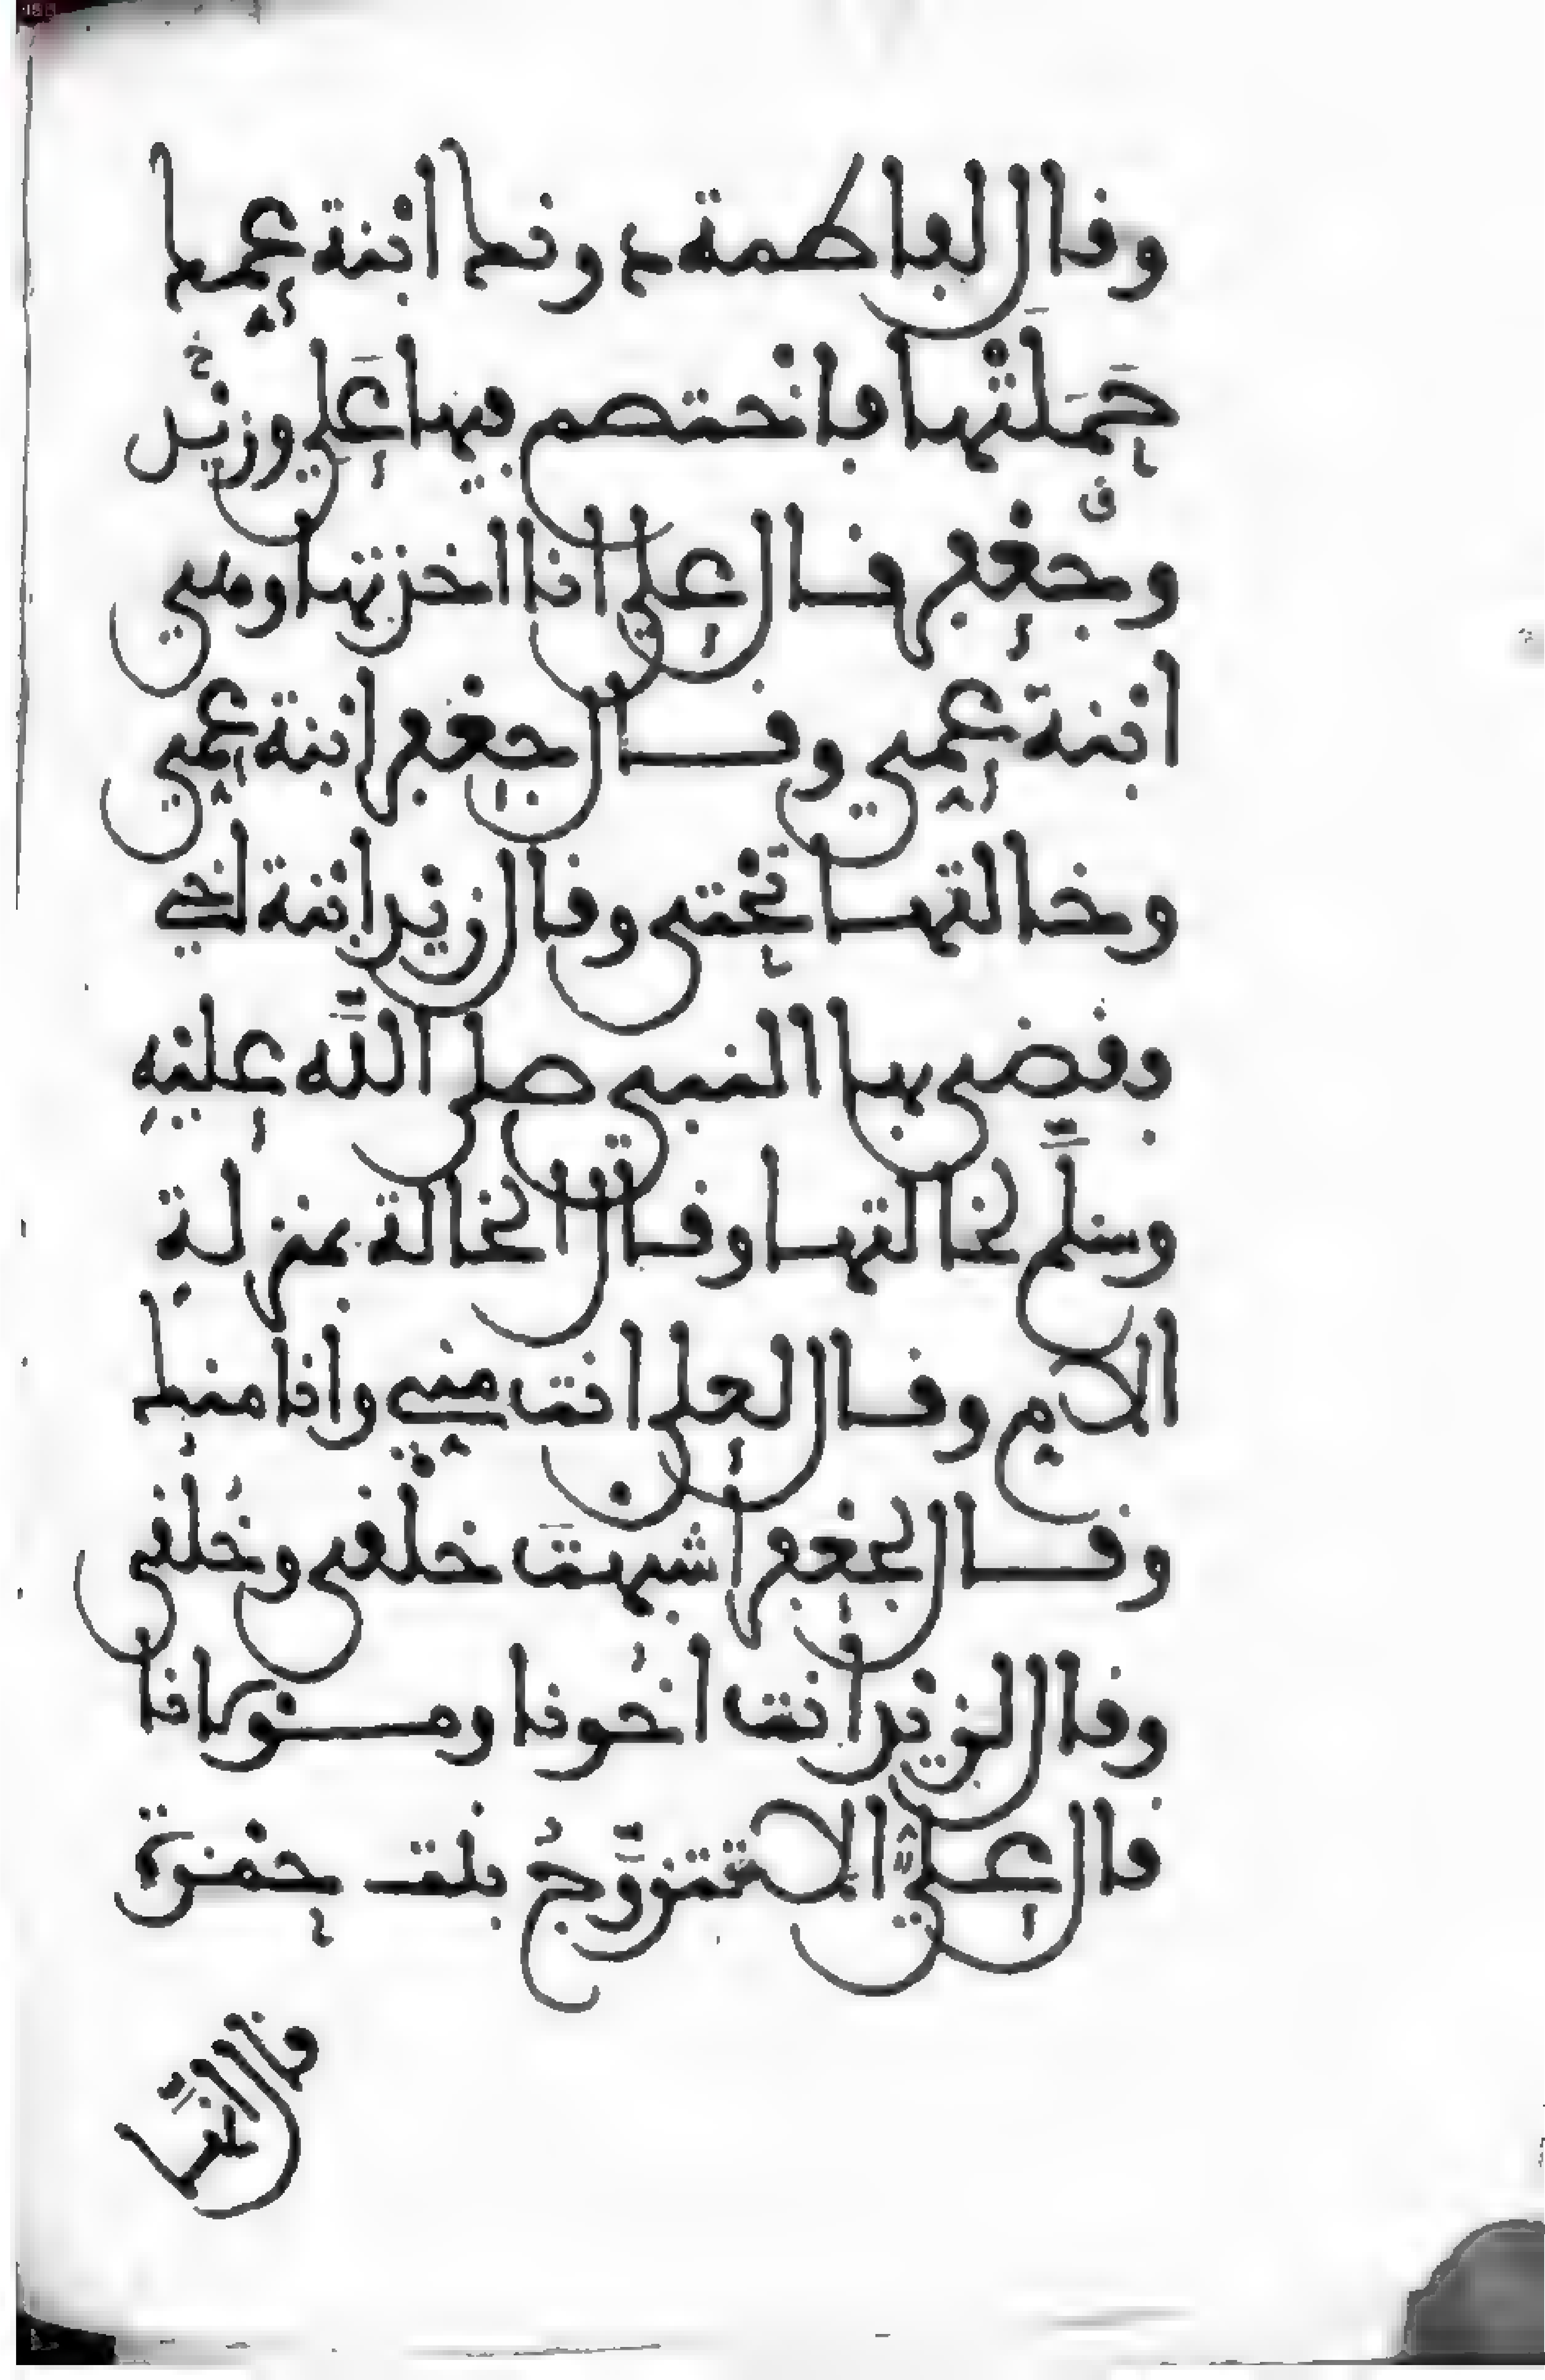 وقال لفاطمة دونك ابنة عمك
حَمَلَتْها فاختصم فيها عَلي وزيْد
وجعفر فقال علي انا اخذتها وهي
ابنة عمِّي وقال جعفر ابنة عمِّي
وخالتها تَحْتي وقال زيْد ابنة اخي
فقضى بها النبي صلى اللَّه عليْه
وسلَّم لخالتها وقال الخالة بمنزلة
الامِّ وقال لعلي انت مِنِّي وانا منك
وقال لجعْفر اشبهتَ خلْقي وخُلُقي
وقال لزيْد انت اخُونا وموْلانا
قال عليٌّ الا تتزوَّجُ بنت حمْزة
قال انَّها